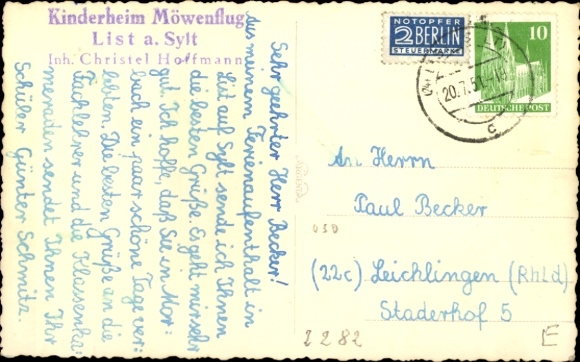 Kinderheim Möwenflug
List a. Sylt
Inh. Christel Hoffmann
Sehr geehrter Herr Becker!
Aus meinem Ferienaufenthalt in
List auf Sylt sende ich Ihnen
die besten Grüße. Es geht mir sehr
gut. Ich hoffe, daß Sie in Mor-
bach ein paar schöne Tage ver-
lebten. Die besten Grüße an die
Fachlehrer und die Klassenka-
meraden sendet Ihnen Ihr
Schüler Günter Schmitz.
NOTOPFER
2 BERLIN
STEUERMARKE
10
DEUTSCHE POST
20.7.51
c
An Herrn
Paul Becker
(22c) Leichlingen (Rhld)
Staderhof 5
030
2282
E